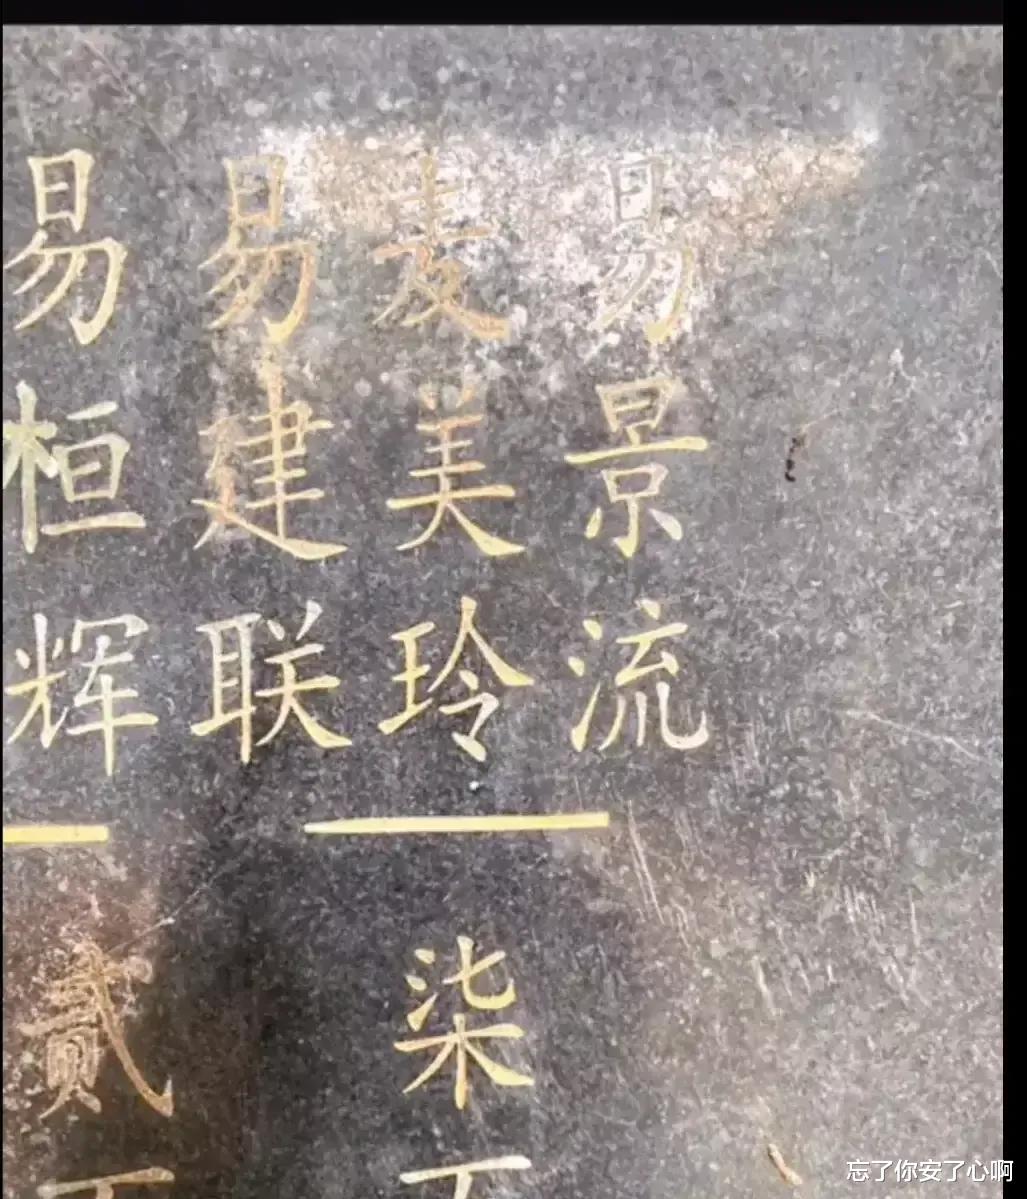 易景流
麦美玲
易建联
柒
易桓辉
贰
忘了你安了心啊